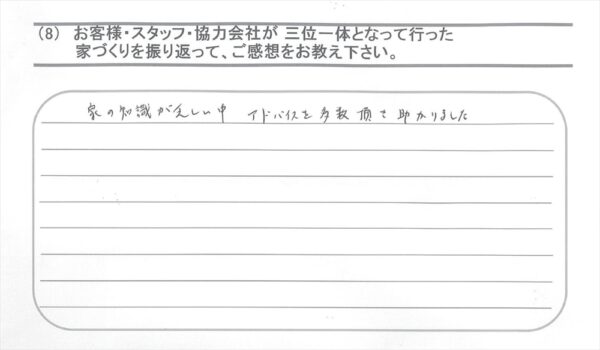 (8) お客様・スタッフ・協力会社が 三位一体となって行った
家づくりを振り返って、ご感想をお教え下さい。
家の知識が乏しい中 アドバイスを多数頂き助かりました